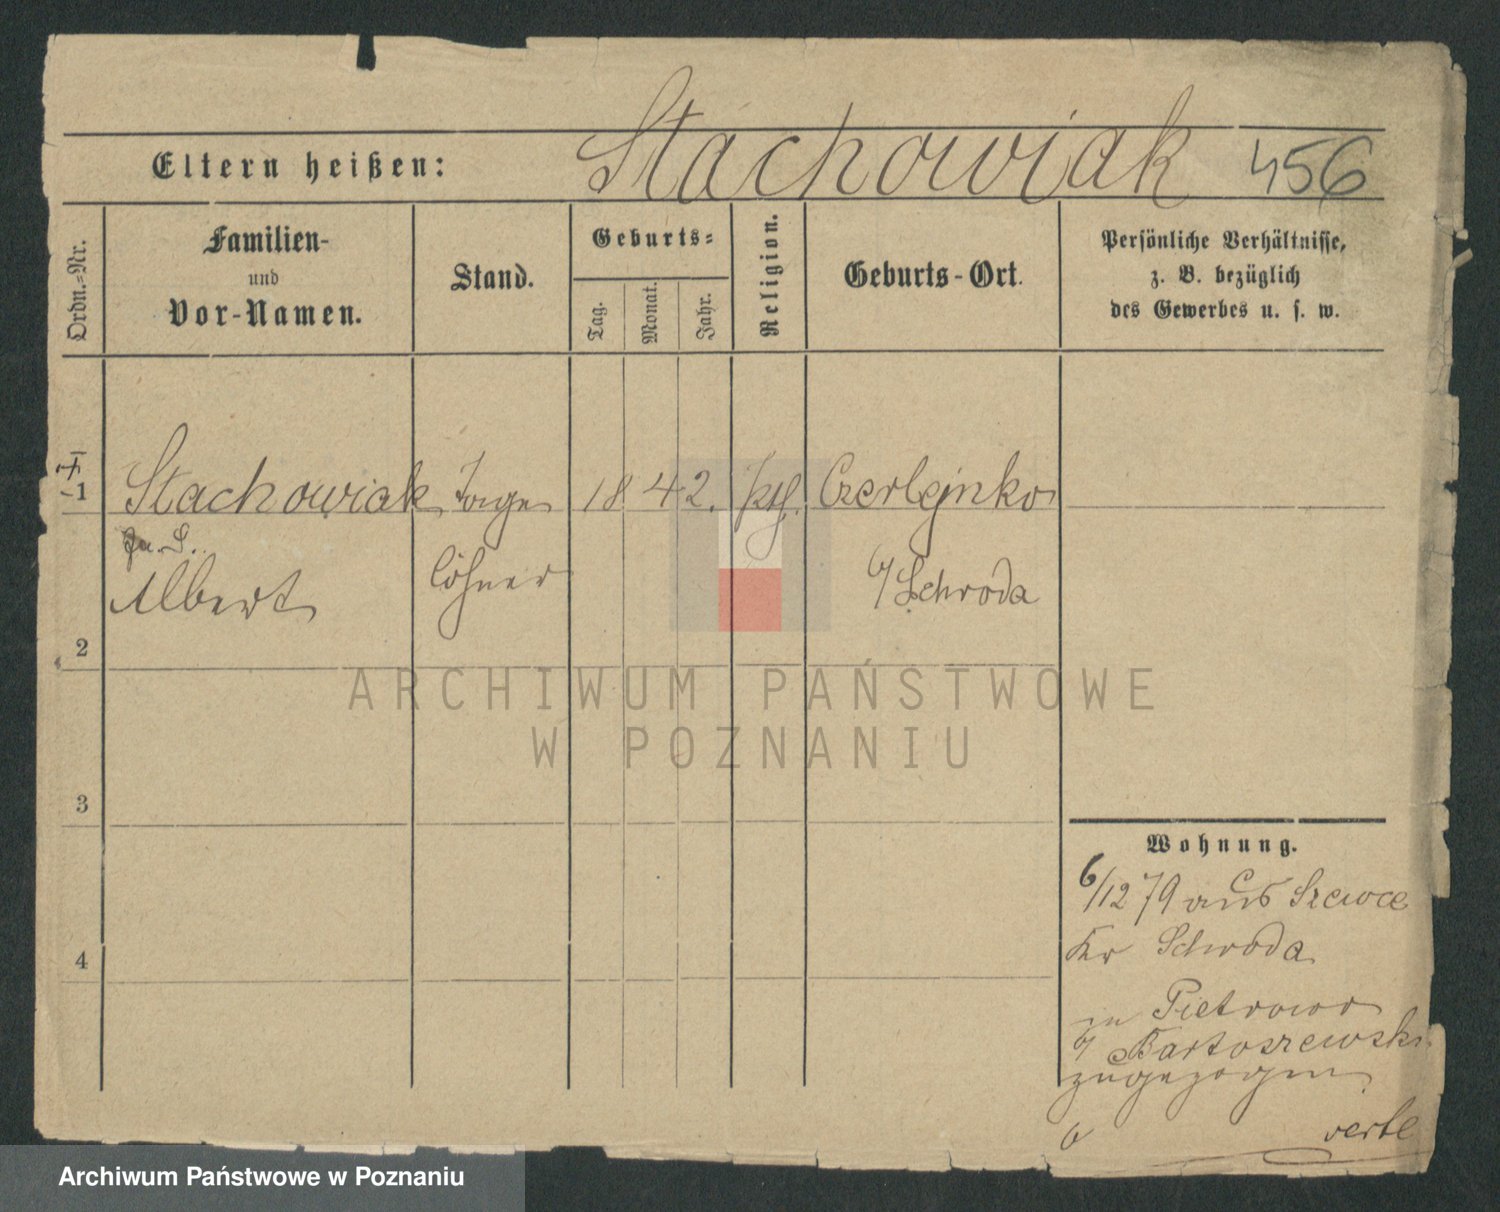 Stachowiak 456
Eltern heißen:
Ordn.-Nr.
Familien-
und
Vor-Namen.
Stand.
Geburts-
Tag.
Monat.
Jahr.
Religion.
Geburts-Ort.
Persönliche Verhältnisse,
z. B. bezüglich
des Gewerbes u. s. w.
1 Stachowiak Tage 1842. kth. Czerlejnko
Albert löhner b/ Schroda
2
3
4
Wohnung.
6/12 79 aus Szewce
Kr Schroda
in Pietrowo
b/ Bartoszewski
zugezogen
ARCHIWUM PAŃSTWOWE
W POZNANIU
Archiwum Państwowe w Poznaniu